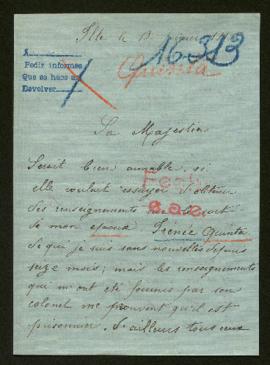 le 13
16313
Quinta
A
Pedir informes
Que se haga
Devolver
Sa Majesté
Serait bien aimable, si
elle voulait essayer d'obtenir
des renseignements
de mon époux Quinta
de qui je suis sans nouvelles depuis
seize mois; mais les renseignements
qui m'ont été fournis par son
colonel me prouvent qu'il est
prisonnier. D'ailleurs tous ceux